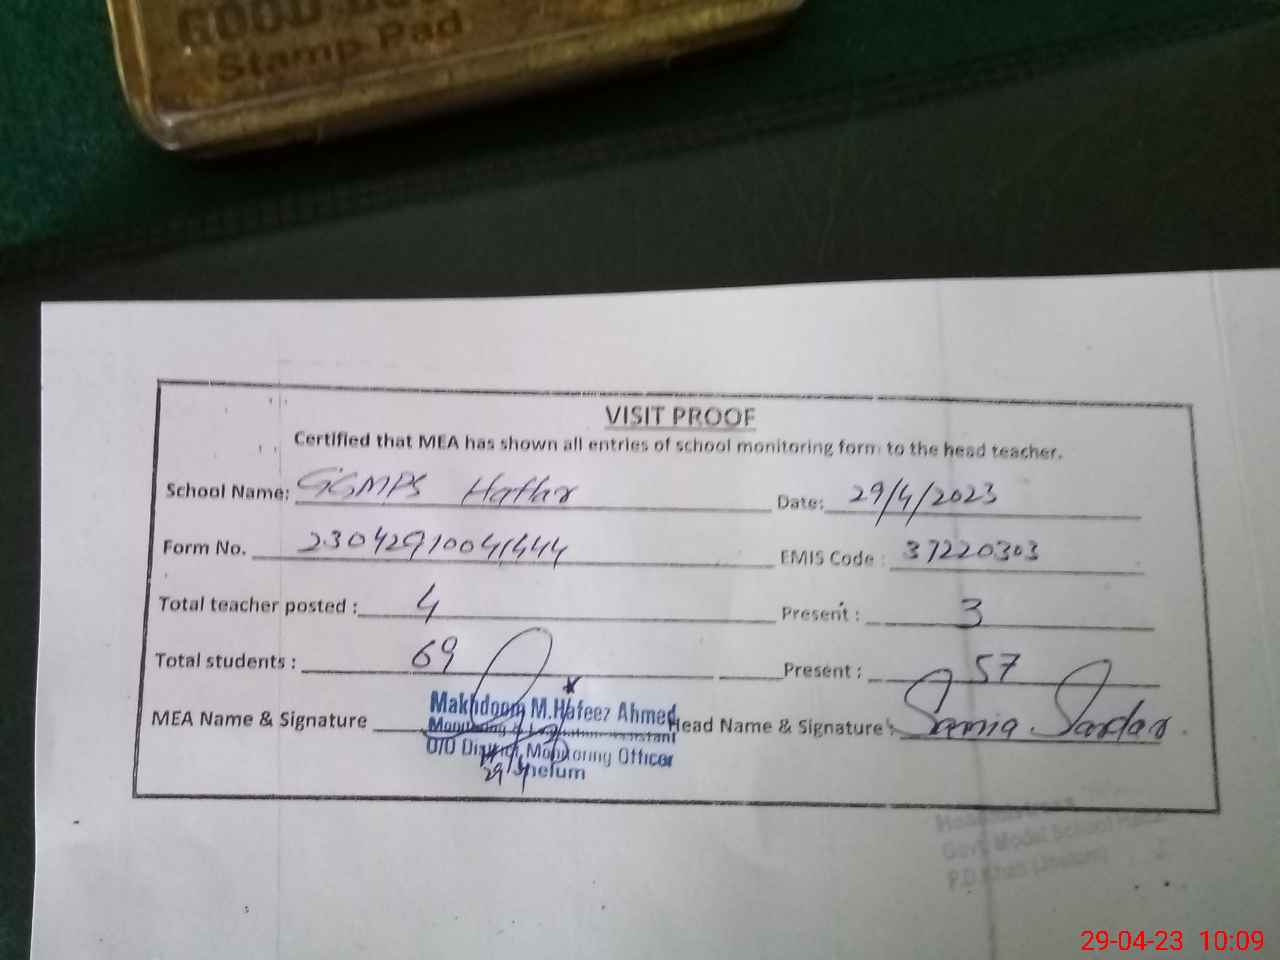 GOOD
Stamp Pad
VISIT PROOF
Certified that MEA has shown all entries of school monitoring form to the head teacher.
School Name: GGMPS Hattar Date: 29/4/2023
Form No. 23042910041444 EMIS Code : 37220303
Total teacher posted : 4 Present : 3
Total students : 69 Present : 57
MEA Name & Signature Makhdoom M.Hafeez Ahmed Head Name & Signature : Samia Sardar
Monitoring & Assistant
O/O District Monitoring Officer
Jhelum
29/4
Govt Model School
P.D Khan (Jhelum)
29-04-23 10:09